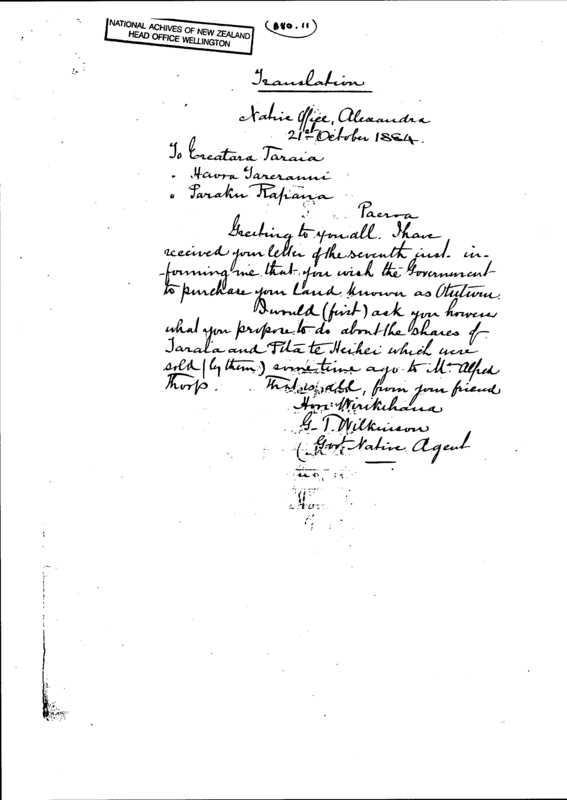 NATIONAL ACHIVES OF NEW ZEALAND
HEAD OFFICE WELLINGTON
(B80.11)
Translation
Native Office, Alexandra
21st October 1884.
To Ereatara Taraia
" Haora Tareranui
" Paraku Rapana
Paeroa
Greeting to you all. I have
received your letter of the seventh inst. in-
forming me that you wish the Government
to purchase your land known as
I would (first) ask you however
what you propose to do about the shares of
Taraia and Pita te Heihei which were
sold (by them) some time ago to Mr Alfred
Thorp. That is all, from your friend
Hori Wirikihana
G. T. Wilkinson
Govt Native Agent